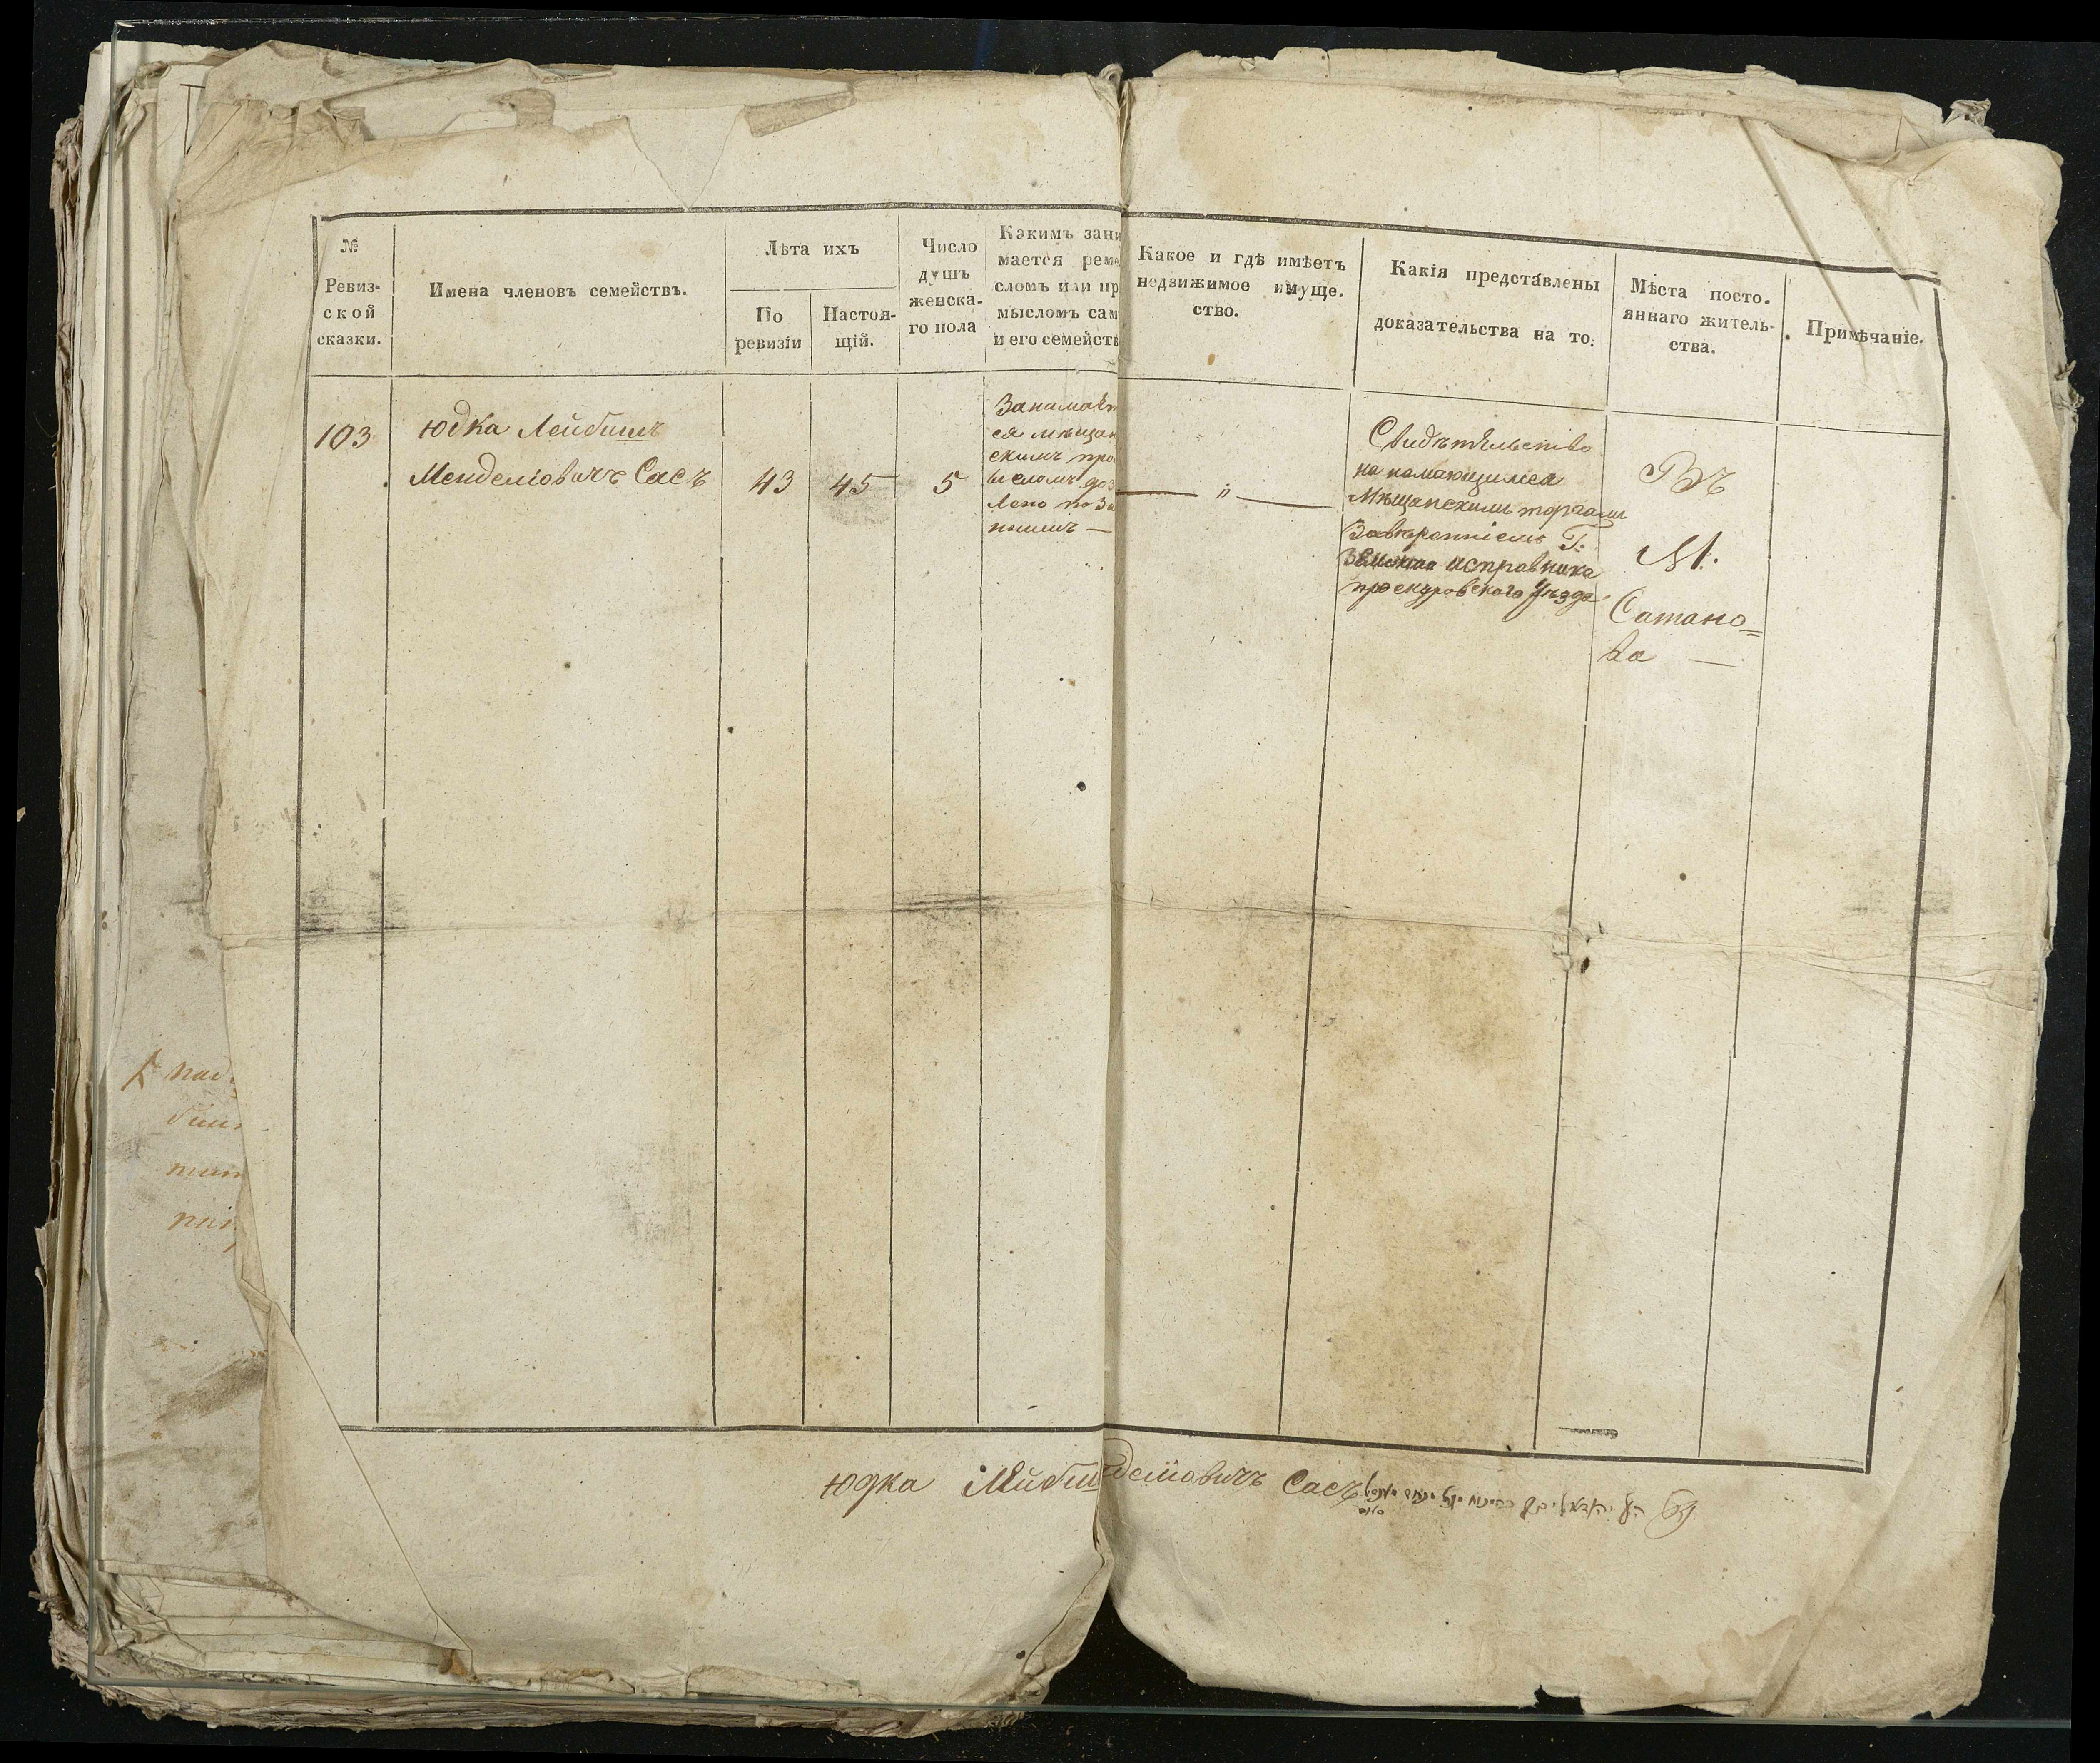 №
Ревиз-
ской
сказки.
Имена членовъ семействъ.
Лѣта ихъ
По
ревизіи
Настоя-
щій.
Число
душъ
женска-
го пола
Какимъ зани
мается реме
сломъ или пр
мысломъ сам
и его семейств
Какое и гдѣ имѣетъ
недвижимое имуще.
ство.
Какія представлены
доказательства на то:
Мѣста посто.
яннаго житель-
ства.
Примѣчаніе.
103
Юдка Лейбишъ
Менделіовичъ Сасъ
43
45
5
Занимает
ся мѣщан
скимъ про
"
Свидѣтельство
Мѣщанскими торгами
Завѣреніемъ Г:
исправника
проскуровскаго уѣзда
Въ
М.
Сатано=
ва —
Юдка Лейби
деліовичъ Сасъ